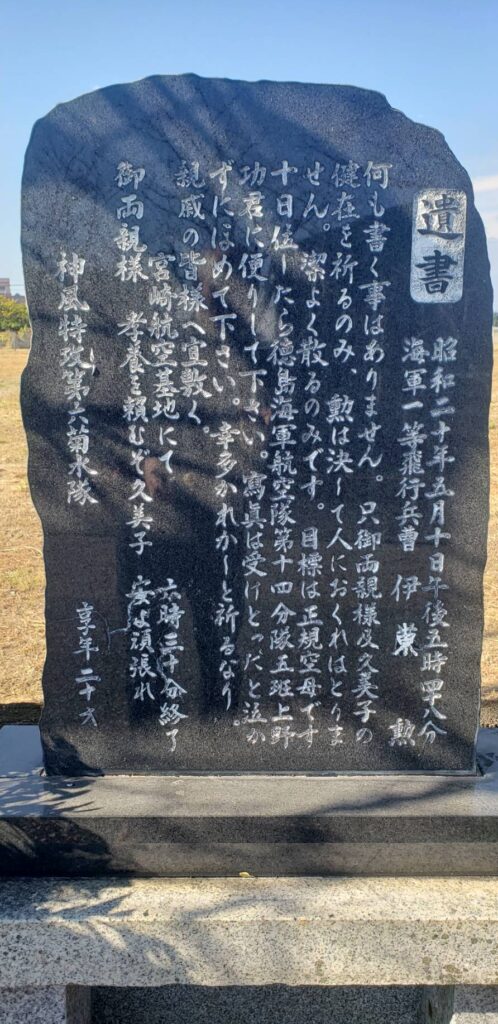 遺書
昭和二十年五月十日午後五時四八分
海軍一等飛行兵曹 伊東勲
何も書く事はありません。只御両親様及久美子の
健在を祈るのみ、勲は決して人におくれはとりま
せん。潔よく散るのみです。目標は正規空母です
十日位したら徳島海軍航空隊第十四分隊五班上野
功君に便りして下さい。寫真は受けとったと泣か
ずにほめて下さい。幸多かれかしと祈るなり。
親戚の皆様へ宜敷く。
宮崎航空基地にて 六時三十分終了
御両親様 孝養を頼むぞ久美子 安よ頑張れ
神風特攻第六菊水隊 享年二十才